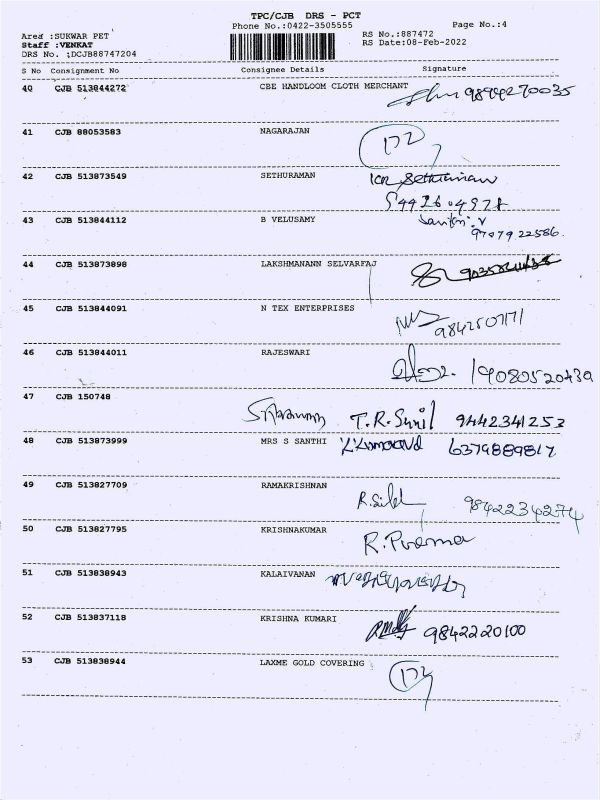 TPC/CJB DRS - PCT
Phone No.:0422-3505555 Page No.:4
Area :SUKWAR PET RS No.:887472
Staff :VENKAT RS Date:08-Feb-2022
DRS No. :DCJB88747204
S No Consignment No Consignee Details Signature
40 CJB 513844272 CBE HANDLOOM CLOTH MERCHANT 9894270035
41 CJB 88053583 NAGARAJAN
42 CJB 513873549 SETHURAMAN
43 CJB 513844112 B VELUSAMY
9707922586
44 CJB 513873898 LAKSHMANANN SELVARFAJ
45 CJB 513844091 N TEX ENTERPRISES
9842507171
46 CJB 513844011 RAJESWARI 9080520439
47 CJB 150748 T.R.Sunil 9442341253
48 CJB 513873999 MRS S SANTHI 6379889817
49 CJB 513827709 RAMAKRISHNAN 9842234274
50 CJB 513827795 KRISHNAKUMAR
51 CJB 513838943 KALAIVANAN
52 CJB 513837118 KRISHNA KUMARI 9842220100
53 CJB 513838944 LAXME GOLD COVERING